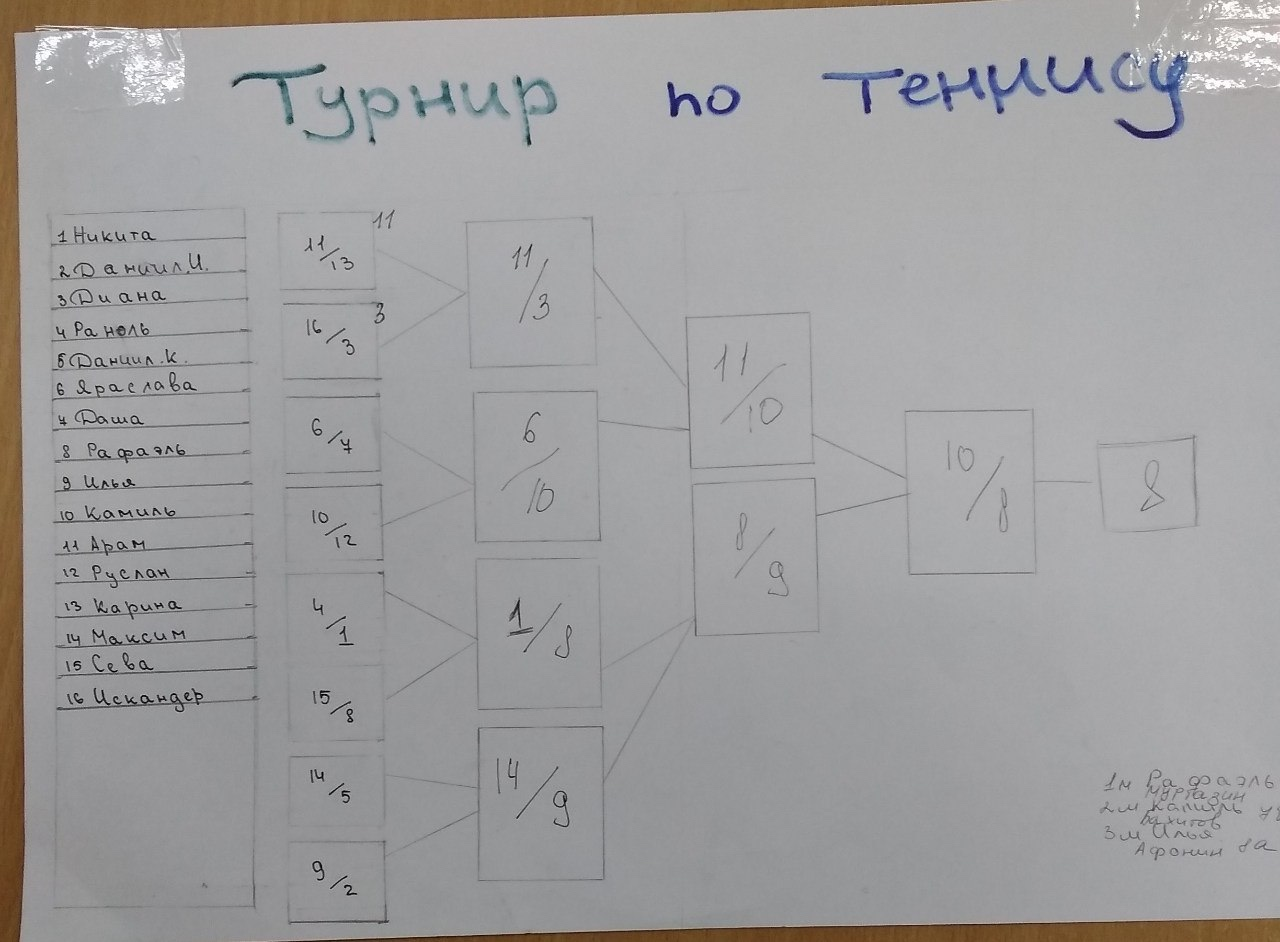 Турнир по Теннису
1 Никита
2 Даниил.И.
3 Диана
4 Раноль
5 Даниил.К.
6 Яраслава
7 Даша
8 Рафаэль
9 Илья
10 Камиль
11 Арам
12 Руслан
13 Карина
14 Максим
15 Сева
16 Искандер
11/13
11
16/3
3
6/7
10/12
4/1
15/8
14/5
9/2
11/3
6/10
1/8
14/9
11/10
8/9
10/8
8
1м Рафаэль
Муртазин
2м Камиль
Вахитов
3м Илья
Афонин 8а